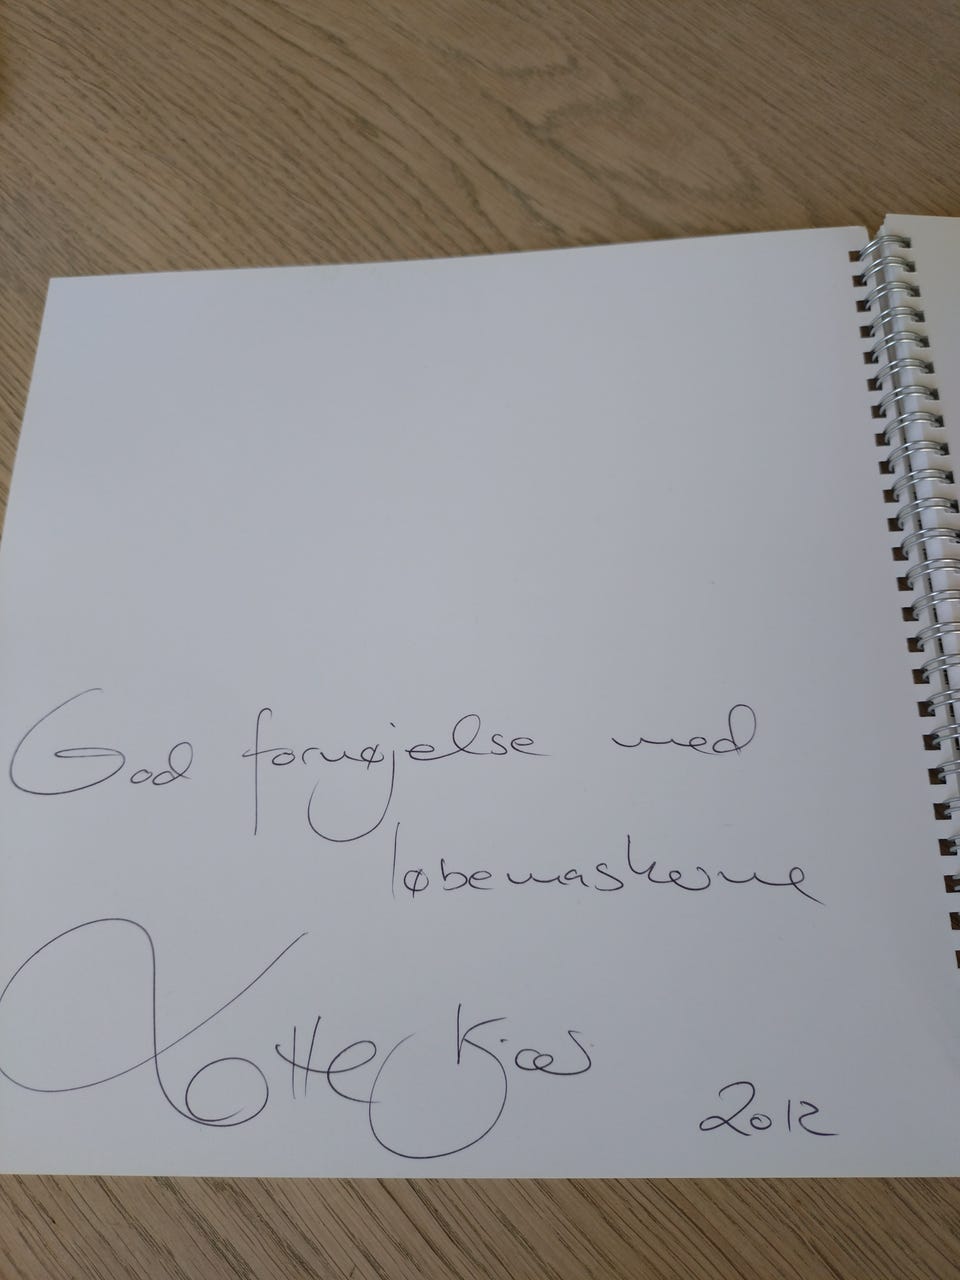 God fornøjelse med
løbemaskerne
Lotte Kjær
2012